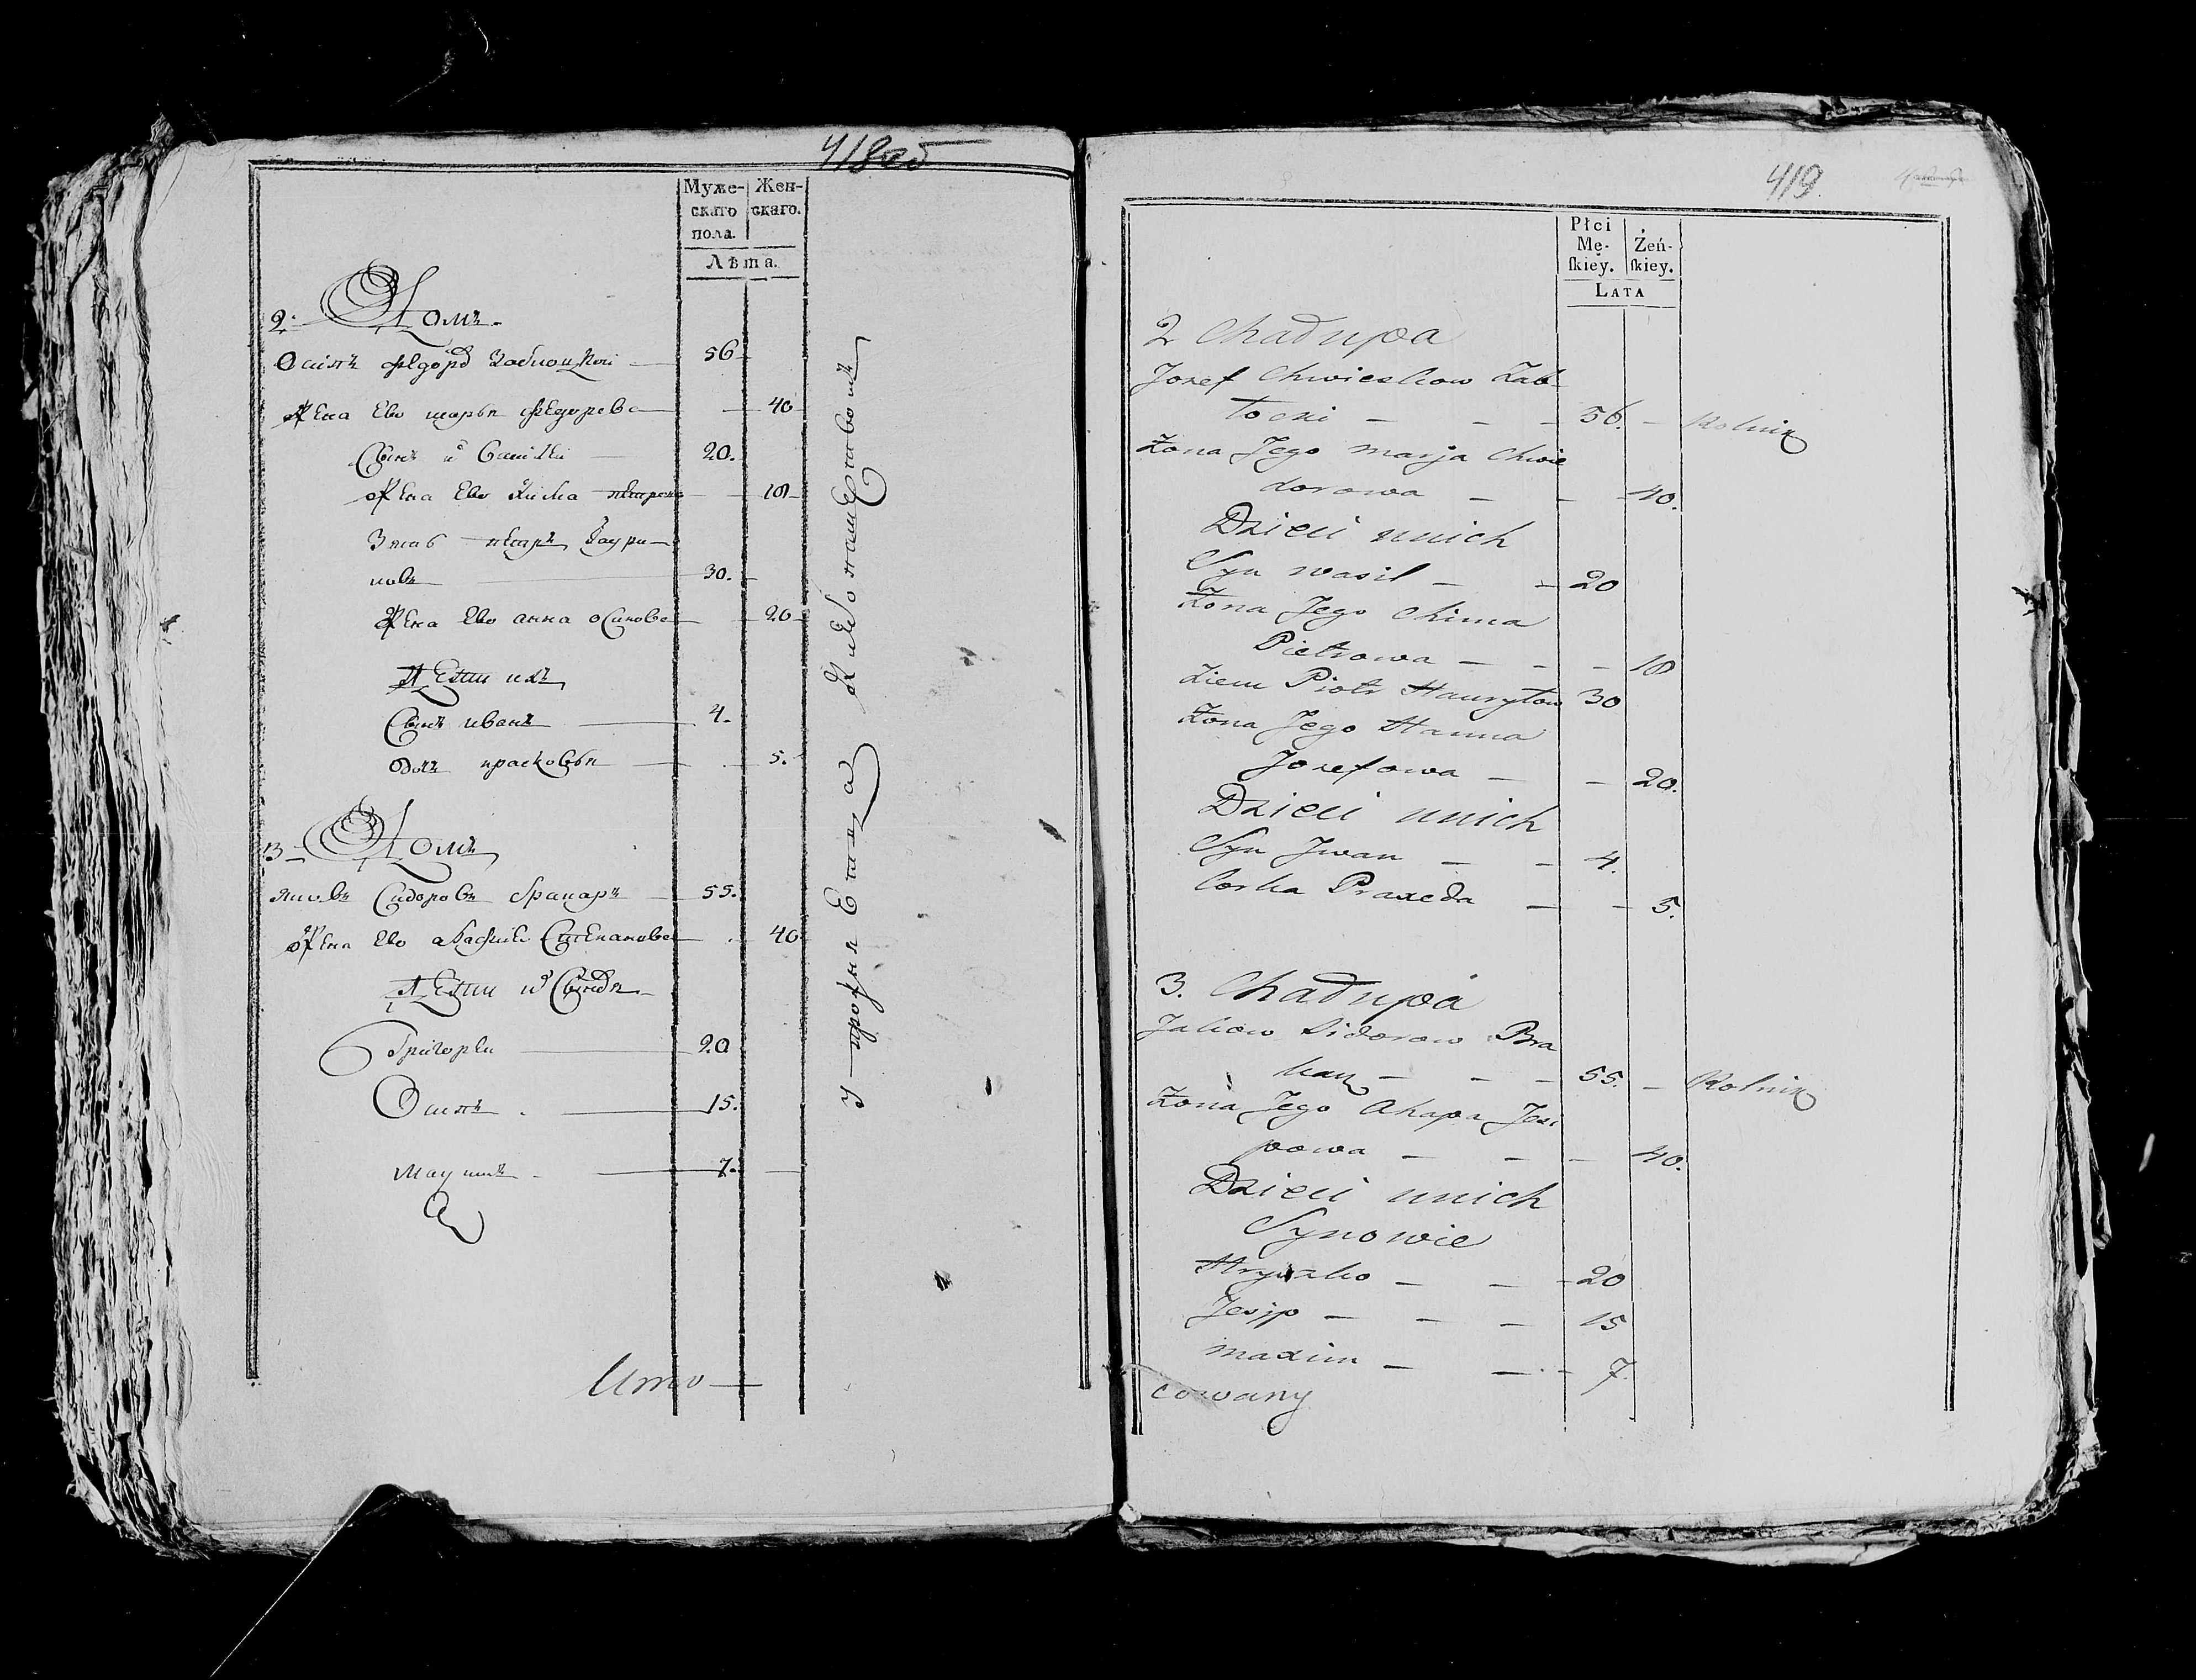 418 об
Муже-
скаго
пола.
Жен-
скаго.
Лѣта.
2. Домъ.
Осипъ Федоро Заблоцкой 56
Жена Ево марья Федорова 40
Сынъ и Василей 20.
Жена Ево Хима петрова 18
Зять петръ Гаври-
ловъ 30.
Жена Ево анна осипова 20
Дети ихъ
Сынъ иванъ 4.
дочь прасковья 5.
3 Домъ
Яковъ Сидоровъ 55.
Жена Ево Степанова 40
Дети
Григорей 20
Осипъ 15.
7.
419
Płci
Mę-
ſkiey.
Żeń-
ſkiey.
LATA
2 Chadupa
Jozef Chwieskow Zab
łocki 56. Rolnik
Zona Jego marja Chwie
dorowa 40.
Dzieci unich
Syn wasil 20
Zona Jego Chima
Pietrowa 18
Ziem Piotr Hauryłow 30
Zona Jego Hanna
Jozefowa 20.
Dzieci unich
Syn Jwan 4.
Corka Praxeda 5.
3. Chadupa
Jakow Sidorow Bra
55. Rolnik
Zona Jego Ahapa Jesi
powa 40.
Dzieci unich
Synowie
20
Jesip 15
maxim 7.
cowany